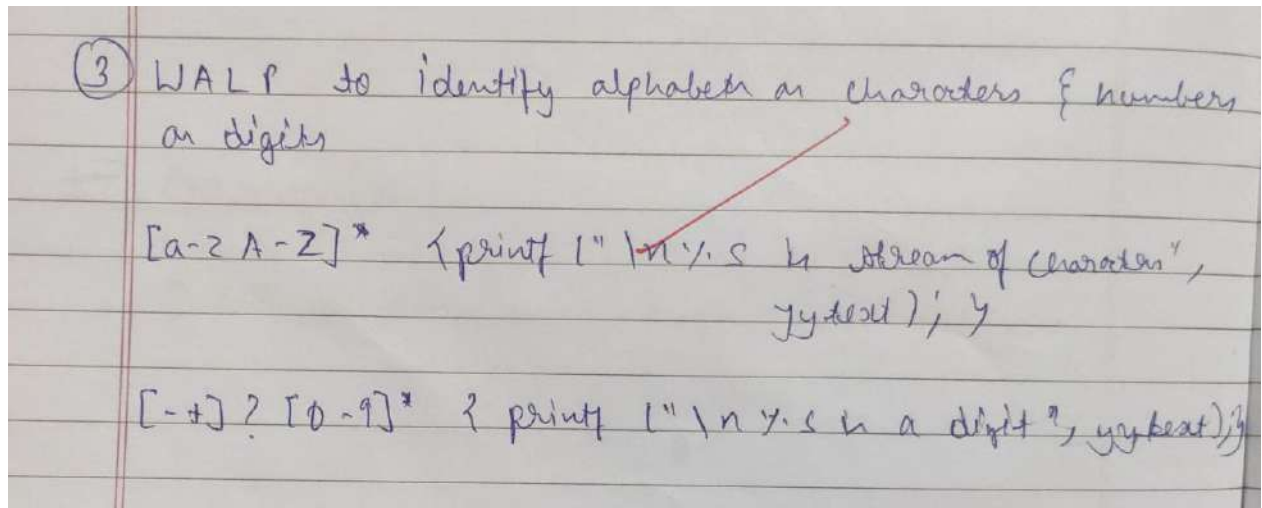 ③ WALP to identify alphabets as characters & numbers
as digits
[a-z A-Z]* {printf ("\n%s is stream of characters",
yytext); }
[-+]? [0-9]* { printf ("\n %s is a digit", yytext);}